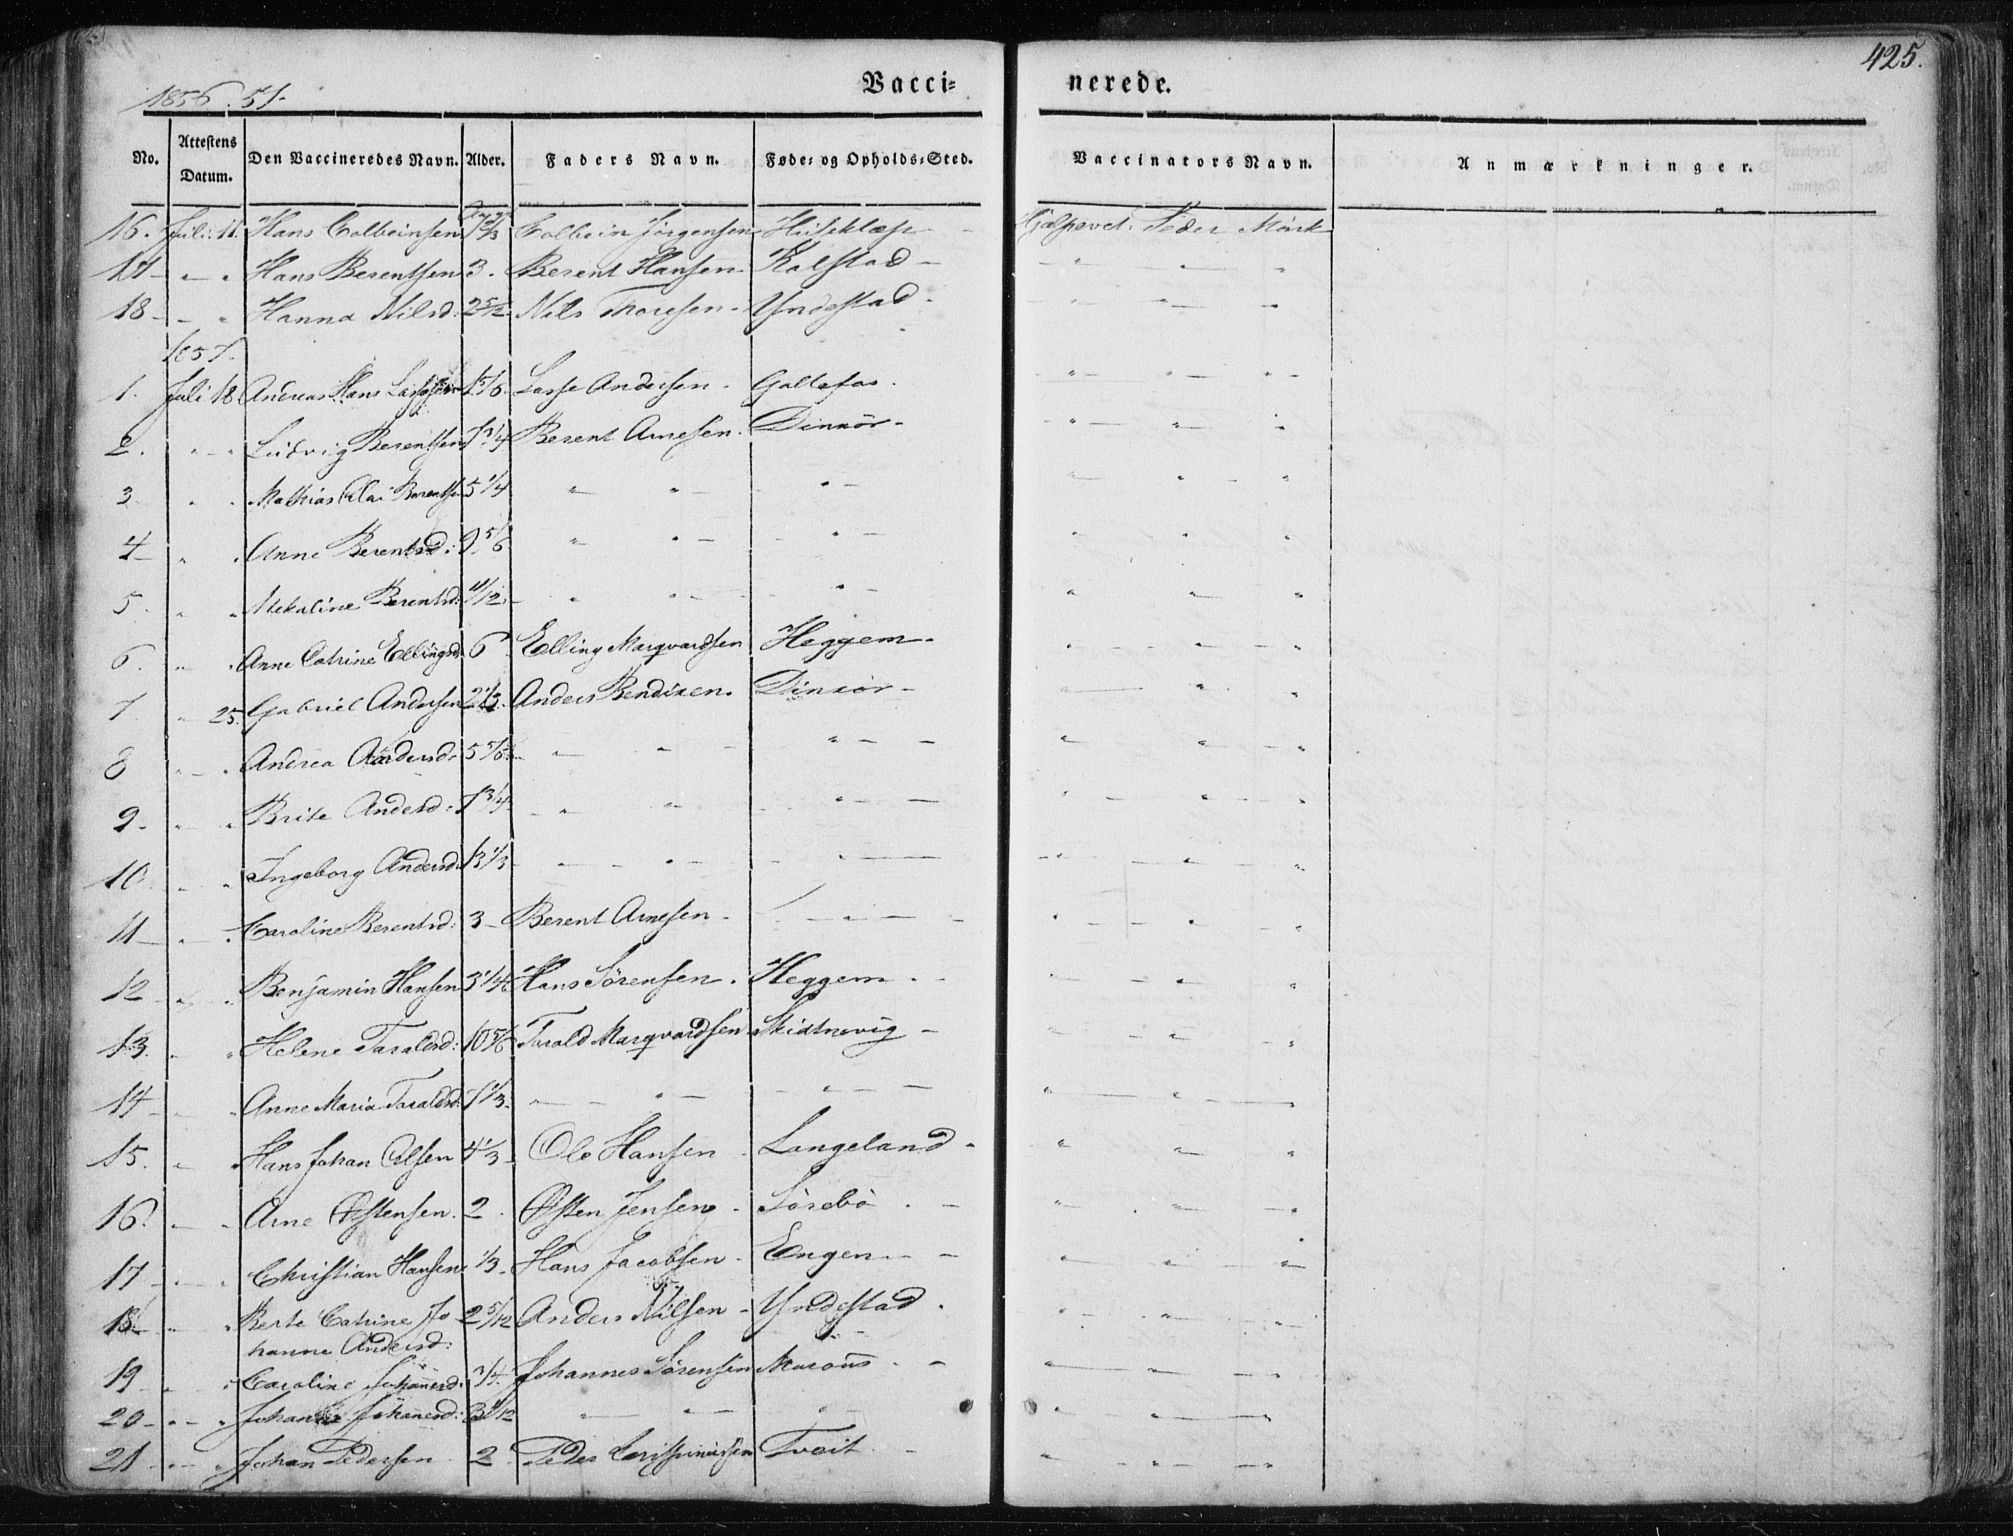 425.
1856. 57.
Vacci= nerede.
No. Attestens Datum. Den Vaccineredes Navn. Alder. Faders Navn. Føde- og Opholds-Sted. Vaccinators Navn. Anmærkninger.
16. Juli 11. Hans Colbeinsen Colbein Jørgensen Hjelpevct. Peder Mørk
17 - " " Hans Berentsen 3. Berent Hansen - Kalstad - " - "
18 - - " Hanna Nilsd: 2 5/12 Nils Thoresen - Yndestad - " - "
1857.
1. Juli 18 Andreas Hans Lassesen 1 5/6. Lasse Andersen - " - " - "
2. " - " Ludvig Berentsen 7 1/4 Berent Arnesen. " - " "
3 " " Mathias Berentsen 5 1/4 " " - " - " - " "
4 - " " Anne Berentsd: 9 5/6 " " - " - " " "
5. " " Berentsd: 11/12. " " - " - " " "
6. " " Anne Catrine Ellingsd. 6. Elling Marqvardsen Heggem - " - " "
7. " 25. Gabriel Andersen 2 1/3. Anders Bendixen. " - " "
8 " - " Andrea Andersd. 5 5/6. - " - " - " - -
9 - " " Brite Andersd: 7 3/4 - " " - " - -
10. - " Ingeborg Andersd. 13 1/3 - " - " - " -
11 - " - " Caroline Berentsd: 3 - Berent Arnesen - " - " "
12 - " " Benjamin Hansen 3 1/4 Hans Sørensen. Heggem - " - " "
13. " " Helene Taraldsd: 10 5/6 Tarald Marqvardsen - " - " "
14 - - " Anne Maria Taraldsd: 7 1/3. - " - " - " - -
15. " " Hans Johan Olsen 4 1/3 Ole Hansen Langeland - " - " "
16. - " Arne Østensen. 2. Østen Jensen - Sørebø. - " - " "
17 - - " Christian Hansen 1/3 - Hans Jacobsen - Engen - - " - " "
18. - " Berte Catrine Jo 2 5/12 Anders Nilsen - Yndestad. " - " "
hanne Andersd:
19 " " Caroline Johannesd. 3/4. Johannes Sørensen - " - " "
20 - " - " Johannesd: " - " - " " - " "
21 - - " Johan Pedersen. 2. Peder Tveit. - " - " "